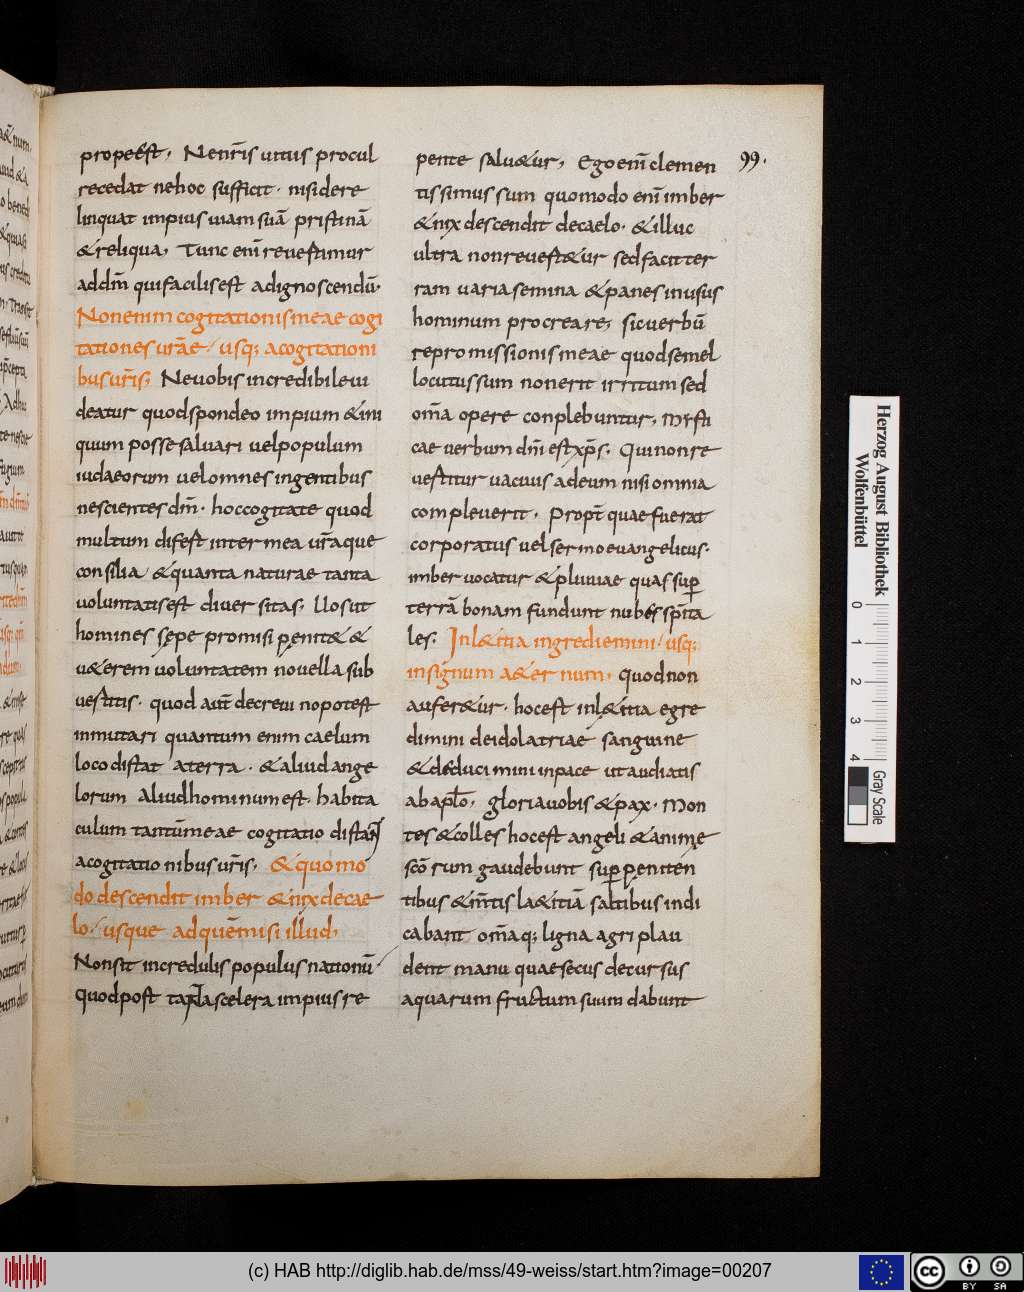 propeest, Nenr̄is uitus procul
recedat nehoc sufficit · nisidere
linquat impius uiam suā pristinā
&reliqua, Tunc enī reuestimur
addm̄ quifacilisest adignoscendū·
Nonenim cogitationismeae cogi
tationes urāe / usq; acogitationi
bus ur̄is; Neuobis incredibileui
deatur quodspondeo impium &ini
quum possesaluari uelpopulum
iudaeorum uelomnes ingentibus
nescientes dm̄ · hoccogitate quod
multum difest inter mea ur̄aque
consilia &quanta naturae tanta
uoluntatisest diuer sitas; Ilosut
homines sępe promisi penit& &
u&erem uoluntatem nouella sub
uestitis · quod aut̄ decreui nopotest
inmutari quantum enim caelum
loco distat aterra · &aliudange
lorum Aliudhominumest · habita
culum tantūmeae cogitatio distan̄t
acogitatio nibus ur̄is, &quomo
do descendit imber &nix decae
lo / usque adquēmisi illud,
Nonsit incredulis populus nationū
quodpost scelera impius re
pente salu&ur, Ego enī clemen
tissimus sum quomodo enī imber
&nix descendit decaelo · &illuc
ultra nonreuest&ur sedfacit ter
ram uaria semina &panes inusus
hominum procreare; sicuerbū
repromissionis meae quodsemel
locutus sum nonerit irritum sed
om̄a opere conplebuntur, Mysti
cae uerbum dn̄i est xp̄s · Quinonre
uestitur uacuus adeum nisi omnia
compleuerit, Propt̄ quae fuerat
corporatus uel sermo euangelicus ·
imber uocatur &pluuiae quas sup̱
terrā bonam fundunt nubes sp̄ita
les · Inl&itia ingrediemini / usq;
insignum a&er num, quodnon
aufer&ur · hocest inl&itia egre
dimini deidolatriae sanguine
&deduci mini inpace utaudiatis
abaplo̅, gloriauobis &pax · Mon
tes &colles hocest angeli &animę
scō rum gaudebunt sup̱ peniten
tibus &in̄tis la&itiā saltibus indi
cabant om̄aq; ligna agri plau
dent manu quae secus decursus
aquarum fructum suum dabunt
99·
Herzog August Bibliothek
Wolfenbüttel
0 1 2 3 4
Gray Scale
(c) HAB http://diglib.hab.de/mss/49-weiss/start.htm?image=00207
cc BY SA